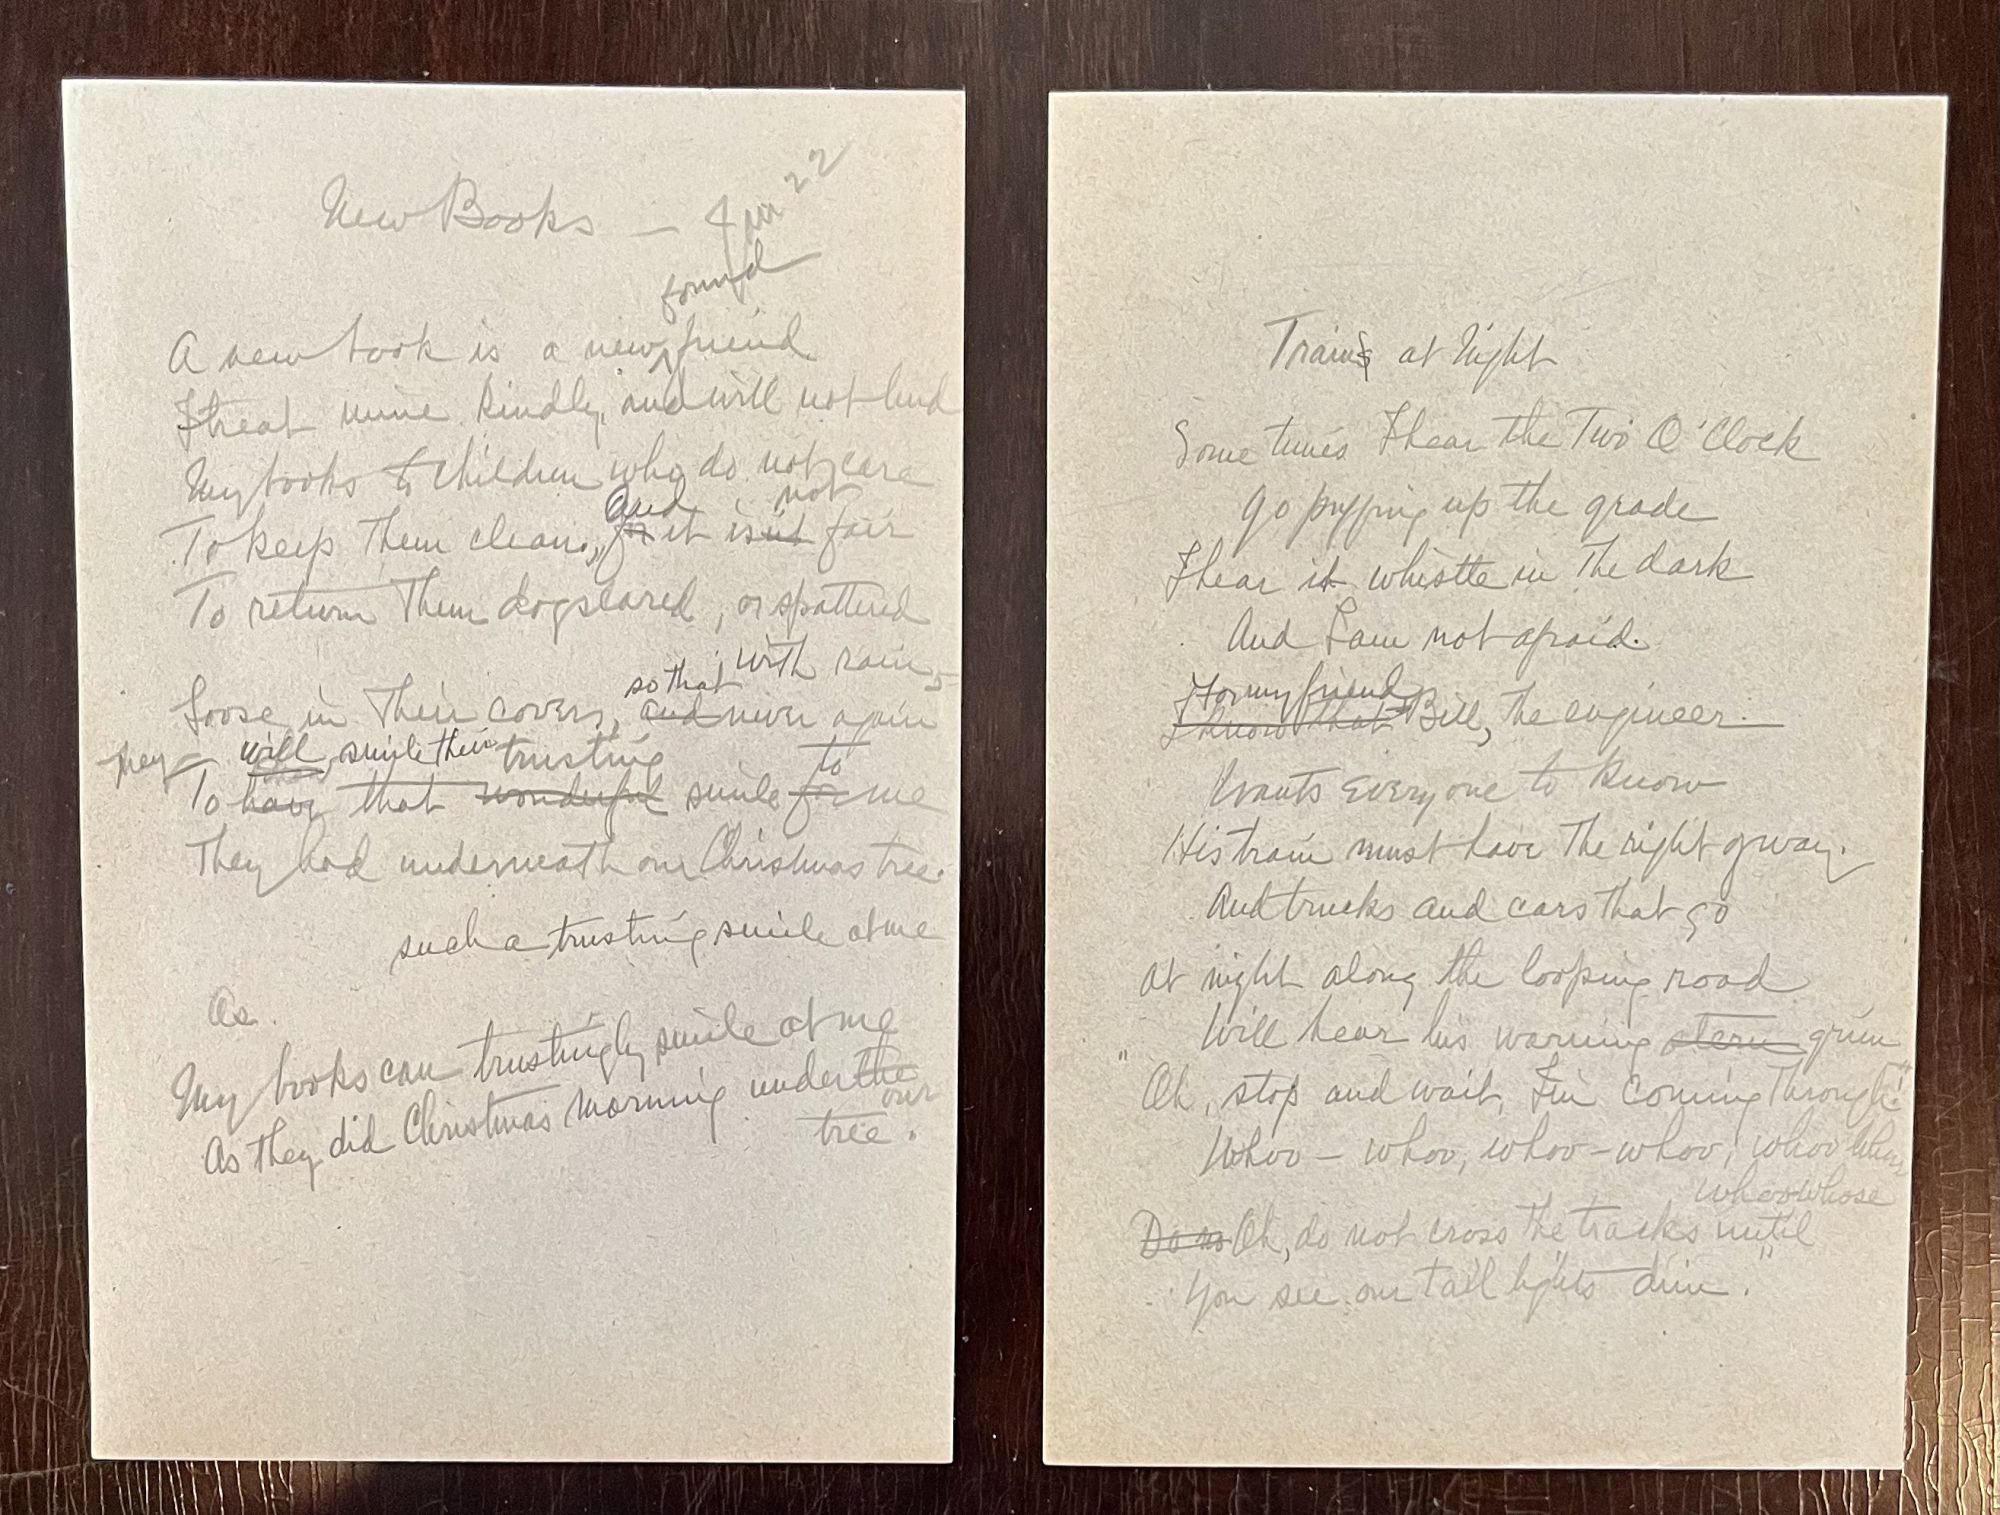 New Books — Jan 22
found
A new friend book is a new friend
I treat mine kindly, and will not lend
My books to children who do not care
and not
To keep them clean, for it isn't fair
To return them dogseared, or spattered
with rain,
so that
Loose in their covers, and never again
they will smile their trusting to
To have that wonderful smile for me
They had underneath our Christmas tree.
such a trusting smile at me
As
My books can trustingly smile at me
As they did Christmas morning under the
our
tree.
Trains at Night
Sometimes I hear the Two O'Clock
Go puffing up the grade
I hear it whistle in the dark
And I am not afraid.
For my friend
I know that Bill, the engineer
Wants everyone to know
His train must have the right of way.
And trucks and cars that go
At night along the looping road
Will hear his warning stern grim
"Oh, stop and wait, I'm coming through!"
Whoo — whoo, whoo — whoo, whoo
whoo
Do no Oh, do not cross the tracks until
You see our tail lights dim."